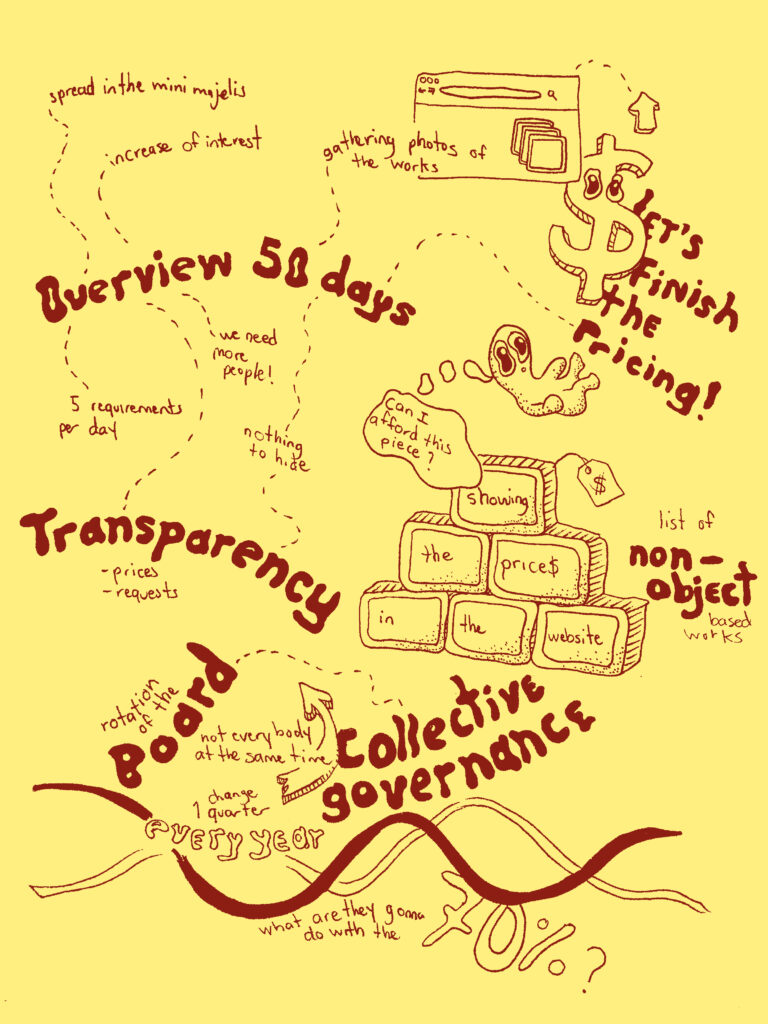 spread in the mini majelis
increase of interest
gathering photos of
the works
LET'S
Finish
the
Pricing!
Overview 50 days
we need
more
people!
5 requirements
per day
nothing
to hide
can I
afford this
piece?
$
showing
the
price$
in
the
website
Transparency
- prices
- requests
list of
non-
object
based
works
rotation
of the
Board
not everybody
at the same time
Collective
governance
change
1 quarter
every year
what are they gonna
do with the
70%?